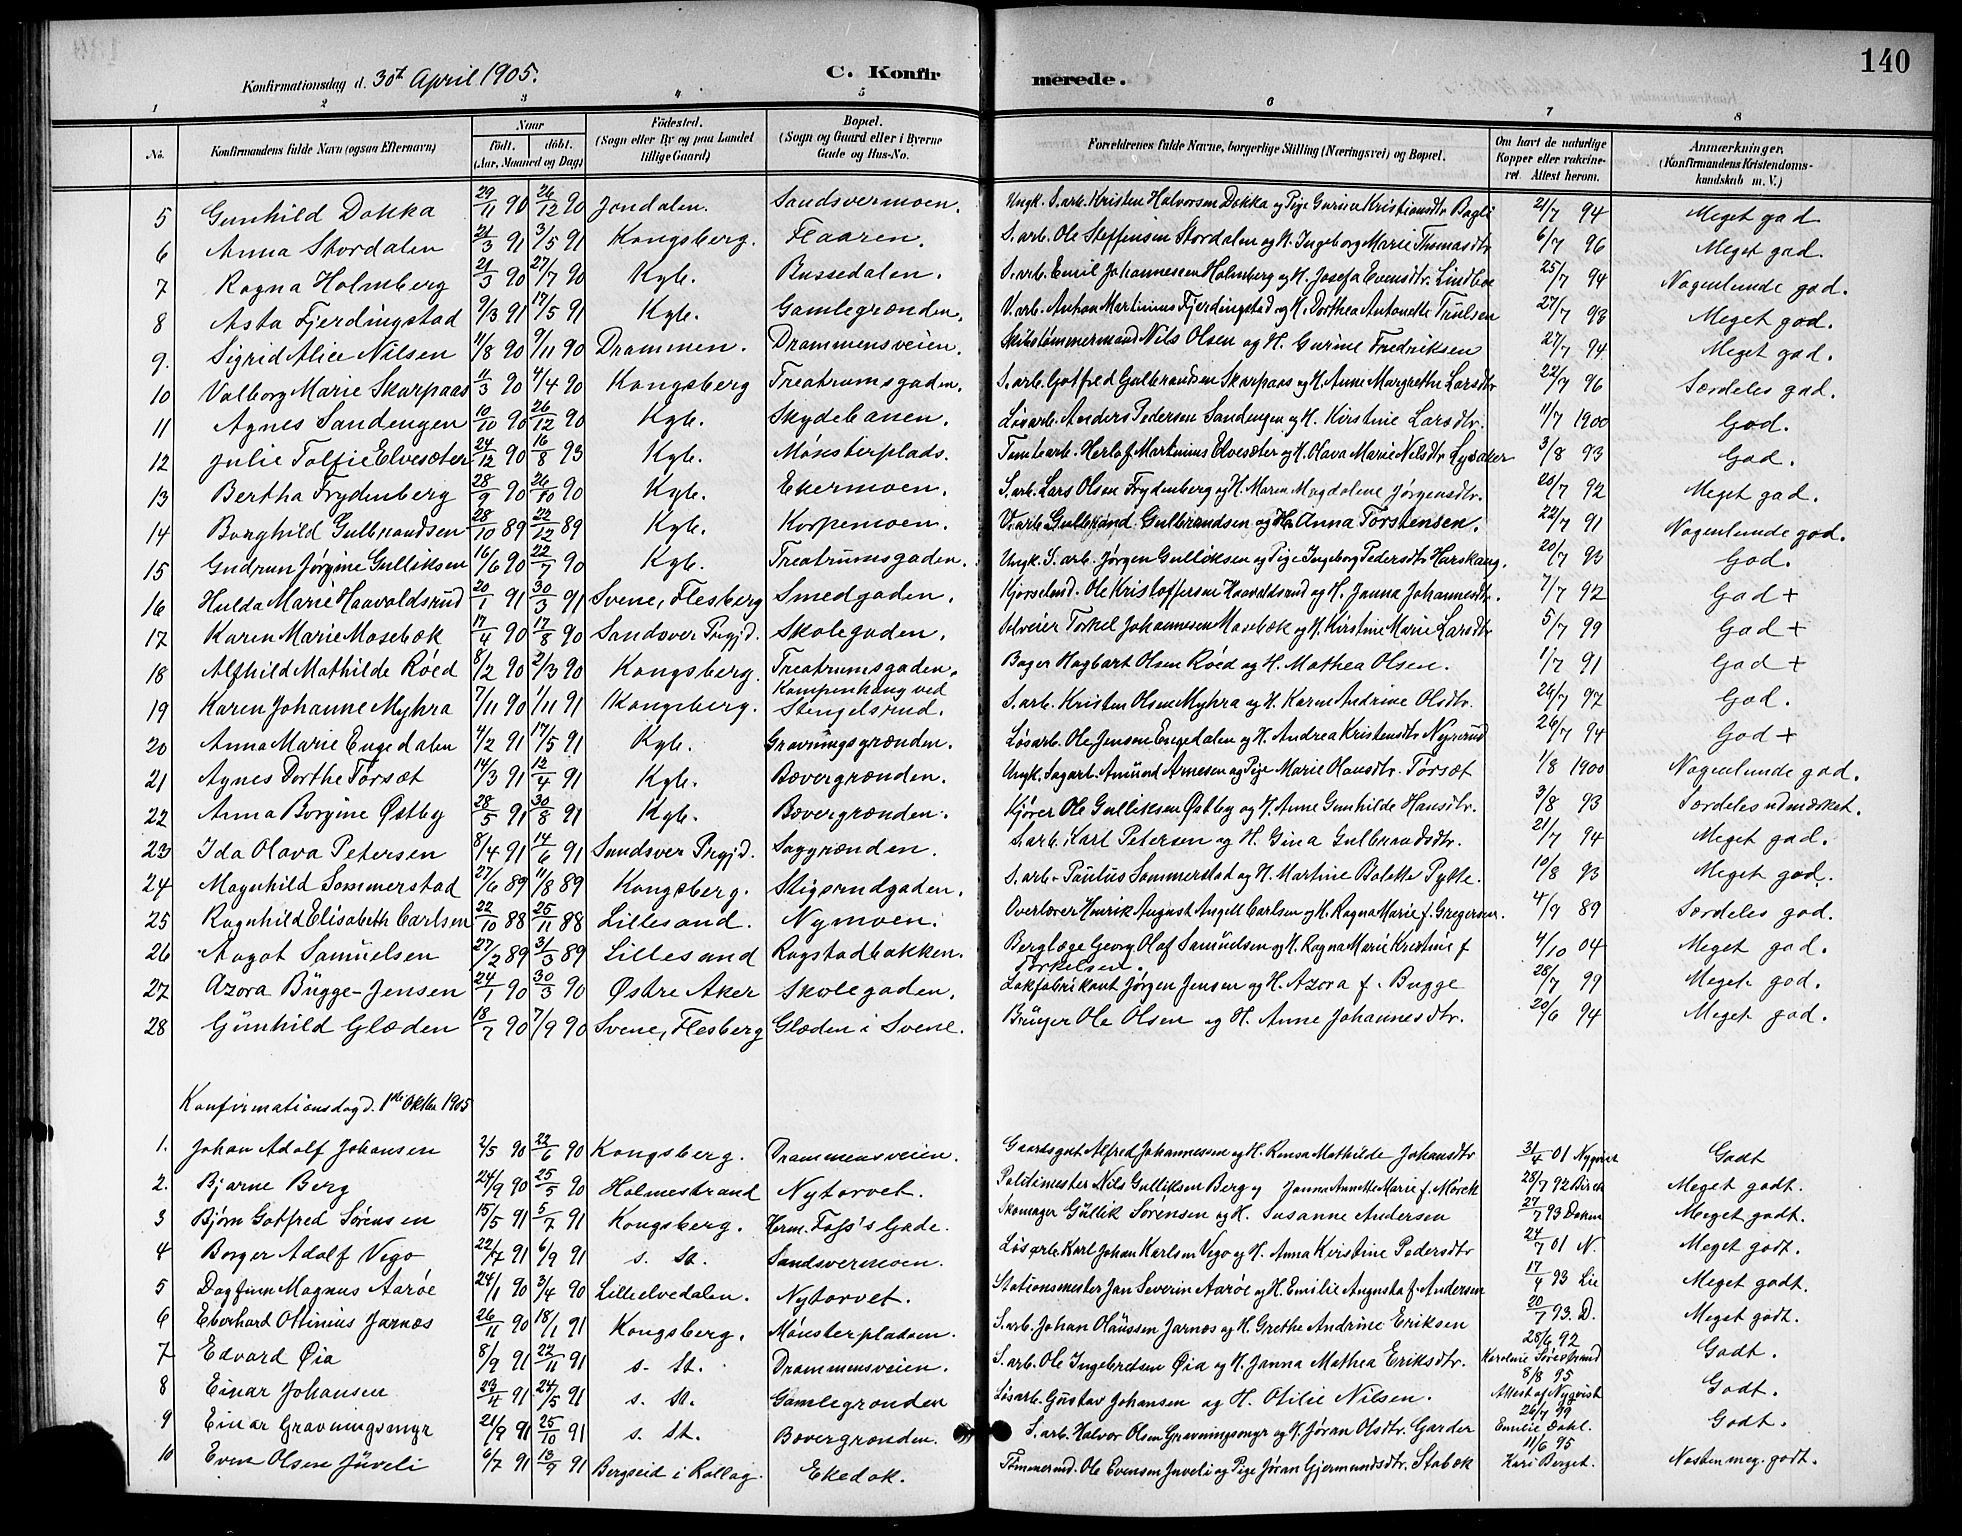 140
Konfirmationsdag d. 30te April 1905. C. Konfirmerede.
1 2 3 4 5 6 7 8
No. Konfirmandens fulde Navn (ogsaa Efternavn) Naar födt. döbt. (Aar, Maaned og Dag) Födested. (Sogn eller By og paa Landet tillige Gaard) Bopæl. (Sogn og Gaard eller i Byerne Gade og Hus-No. Forældrenes fulde Navne, borgerlige Stilling (Næringsvei) og Bopæl. Om havt de naturlige Kopper eller vakcineret. Attest herom. Anmærkninger, (Konfirmandens Kristendomskundskab m. V.)
5 Gunhild Dokka 29/11 90 26/12 90 Jondalen. Sandsvermoen. Ungk. S. arb. Kristen Halvorsen Dokka og Pige Gurine Kristiansdtr Bagli 21/7 94 Meget god
6 Anna Stordalen 21/3 91 3/5 91 Kongsberg. Flaaren. S. arb. Ole Steffensen Stordalen og H. Ingeborg Marie Thomasdtr 6/7 96 Meget god.
7 Ragna Holmberg 21/3 90 27/7 90 Kgb. Bussedalen. S. arb. Emil Johannesen Holmberg og H. Josefa Evensdtr. Lindboe 25/7 94 Nogenlunde god.
8 Asta Fjerdingstad 9/3 91 17/5 91 Kgb. Gamlegrænden. V. arb. Anton Martinius Fjerdingstad og H. Dorthea Antonette Trulsen 27/7 98 Meget god.
9. Sigrid Alice Nilsen 11/8 90 9/11 90 Drammen. Drammensveien. Skibstømmermand Nils Olsen og H. Gurine Fredriksen 27/7 94 Meget god.
10 Valborg Marie Skarpaas 11/3 90 4/4 90 Kongsberg Treatrumsgaden. S. arb. Gotfred Gulbrandsen Skarpaas og H. Anne Margrethe Larsdtr 22/7 96 Særdeles god.
11 Agnes Sandengen 10/10 90 26/12 90 Kgb. Skydebanen. Løsarb. Anders Pedersen Sandengen og H. Kirstine Larsdtr. 11/7 1900 God.
12 Julie Tolfie Elvesæter 24/12 90 16/8 93 Kgb. Mønsterplads. Tomtearb. Herlof Martinius Elvesæter og H. Olava Marie Nilsdtr Lysaker 3/8 93 God.
13 Bertha Frydenberg 28/9 90 26/10 90 Kgb. Ekermoen. S. arb. Lars Olsen Frydenberg og H. Maren Magdalene Jørgensdtr. 28/7 92 Meget god.
14 Borghild Gulbrandsen 28/10 89 22/12 89 Kgb. Korpemoen. V. arb. Gulbrand Gulbrandsen og H. Anna Torstensen. 22/7 91 Nogenlunde god.
15 Gudrun Jørgine Gulliksen 16/6 90 22/7 90 Kgb. Treatrumsgaden. Ungk. S. arb. Jørgen Gulliksen og Pige Ingeborg Pedersdtr Harskaug. 20/7 93 God.
16 Hulda Marie Haavaldsrud 20/1 91 30/3 91 Svene, Flesberg Smedgaden. Kjørselmd. Ole Kristoffersen Haavaldsrud og H. Janna Johannesdtr. 7/7 92 God +
17 Karen Marie Mosebæk 17/4 90 17/8 90 Sandsver Prgjd. Skolegaden. Sølveier Torkel Johannesen Mosebæk og H. Kirstine Marie Larsdtr 5/7 99 God +
18 Alfhild Mathilde Röed 8/2 90 2/3 90 Kongsberg. Treatrumsgaden. Bager Hagbart Olsen Röed og H. Mathea Olsen. 1/7 91 God +
19 Karen Johanne Myhra 7/11 90 1/11 91 Kongsberg. Kampenhaug ved Stengelsrud. S. arb. Kristen Olsen Myhra og H. Karen Andrine Olsdtr. 26/7 97 God.
20 Anna Marie Engedalen 4/2 91 17/5 91 Kgb. Gravningsgrænden. Løsarb. Ole Jensen Engedalen og H. Andrea Kristensdtr Nyrerud 26/7 94 God +
21 Agnes Dorthe Tørsæt 14/3 91 12/4 91 Kgb. Bævergrænden. Ungk. Sagarb. Amund Arnesen og Pige Marie Olausdtr. Tørsæt 1/8 1900 Nogenlunde god.
22 Anna Borgine Østby 28/5 91 30/8 91 Kgb. Bævergrænden. Kjører Ole Gulliksen Østby og H. Anne Gunhilde Hansdtr. 3/8 93 Særdeles udmærket.
23 Ida Olava Petersen 8/4 91 14/6 91 Sandsver Prgjd. Saggrænden. S. arb. Karl Petersen og H. Gina Gulbrandsdtr. 21/7 94 Meget god.
24 Magnhild Sommerstad 27/6 89 11/8 89 Kongsberg. Stigsrudgaden. S. arb. Paulus Sommerstad og H. Martine Bolette Pytte. 10/8 93 Meget god.
25 Ragnhild Elisabeth Carlsen 22/10 88 25/11 88 Lillesand. Nymoen. Overlærer Henrik August Angell Carlsen og H. Ragna Marie f. Gregersen. 4/9 89 Særdeles god.
26 Aagot Samuelsen 27/2 89 31/3 89 Lillesand Rogstadbakken. Berglæge Georg Olaf Samuelsen og H. Ragna Marie Kristine f Torkelsen. 4/10 04 Meget god.
27 Azora Bügge-Jensen 24/1 90 30/3 90 Østre Aker Skolegaden. Lakfabrikant Jørgen Jensen og H. Azora f. Bugge 28/7 99 Meget god.
28 Günhild Glæden 18/7 90 7/9 90 Svene, Flesberg Glæden i Svene. Brüger Ole Olsen og H. Anne Johannesdtr. 20/6 94 Meget god.
Konfirmationsdag d. 1ste Oktbr 1905
1. Johan Adolf Johansen 2/5 90 22/6 90 Kongsberg. Drammensveien. Gaardsgut Alfred Johannessen og H. Rensa Mathilde Johansdtr 31/4 01 Nyqvist Godt
2. Bjarne Berg 24/9 90 25/5 90 Holmestrand Nytorvet. Politimester Nils Gulliksen Berg og Janna Annette Marie f. Mörck 28/7 92 Birch Meget godt.
3 Bjørn Gotfred Sørensen 15/5 91 5/7 91 Kongsberg. Herm. Foss's Gade. Skomager Güllik Sørensen og H. Susanne Andersen 27/7 93 Meget godt.
4 Borger Adolf Vego 22/7 91 6/9 91 s. St. Sandsvermoen. Løsarb. Karl Johan Karlsen Vego og H. Anna Kirstine Pedersdtr 24/7 01 N. Meget godt.
5 Dagfinn Magnus Aarøe 24/1 90 3/4 90 Lilleelvedalen. Nytorvet. Stationsmester Jan Severin Aarøe og H. Emilie Augusta f. Andersen 17/4 93 Lie Meget godt.
6 Eberhard Ottinius Jarnæs 26/11 90 18/1 91 Kongsberg. Mønsterpladsen. S. arb. Johan Olaüssen Jarnæs og H. Grethe Andrine Eriksen 20/7 93. D. Meget godt.
7 Edvard Øia 8/9 91 22/11 91 s. St. Drammensveien. S. arb. Ole Ingebretsen Øia og H. Janna Mathea Eriksdtr. 28/6 92 Karoline Godt.
8 Einar Johansen 23/4 91 24/5 91 s. St. Gamlegrænden Løsarb. Güstav Johansen og H. Otilie Nilsen. 8/8 95 Attest af Nyqvist Godt.
9 Einar Gravningsmyr 21/9 91 25/10 91 s. St. Bævergrænden. S. arb. Halvor Olsen Gravningsmyr og H. Jøran Olsdtr. Garder 26/7 99 Emilie Dahl. Godt.
10 Even Olsen Jüveli 6/7 91 13/9 91 Bergseid i Rollag. Ekedok. Tømmermd. Ole Evensen Juveli og Pige Jøran Gjermundsdtr. Stabæk 11/6 95 Kari Berget. Næsten meg. godt.